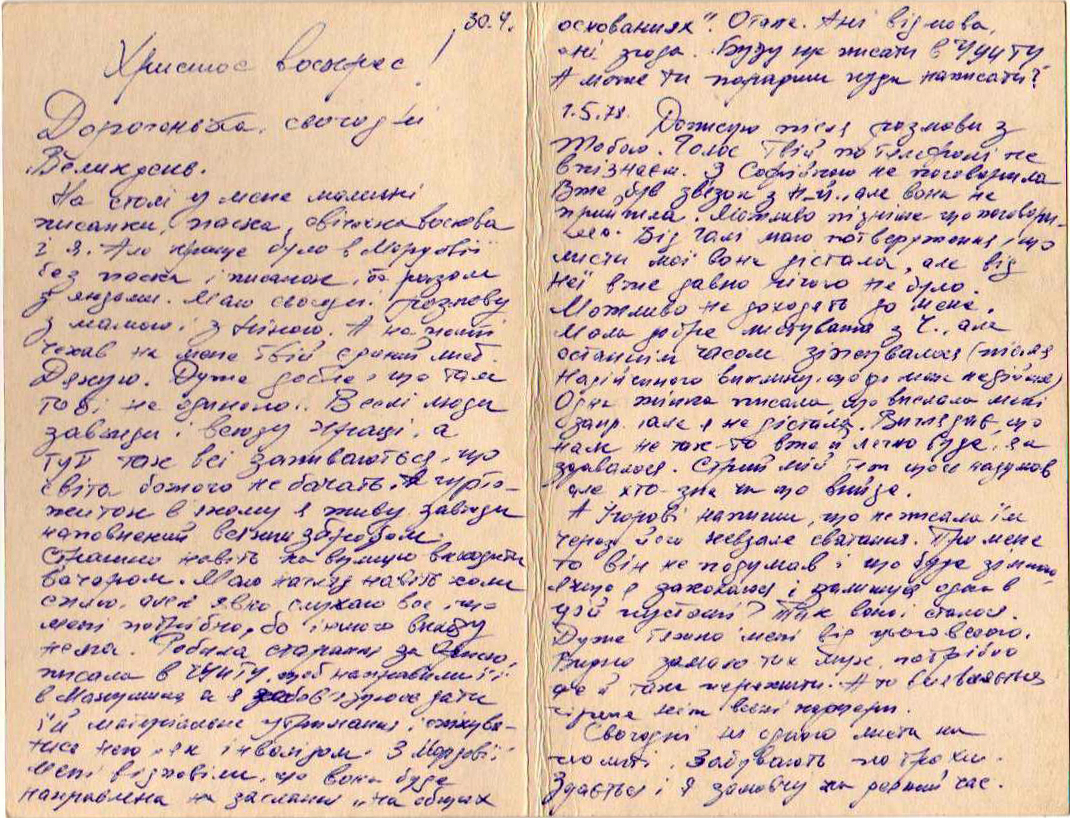 30.4.
Христос воскрес!
Дорогенька, сьогодні
Великдень.
На столі у мене мальовні
писанки, паска, свічечка воскова
і я. Але краще було в Мордовії
без паски і писанок, бо разом
з янголи. Маю сьогодні розмову
з мамою і з Ніною. А на пошті
чекав на мене твій єдиний лист.
Дякую. Дуже добре, що там
тобі не одиноко. Веселі люди
завжди і всюду кращі, а
тут так всі запиваються, що
світа божого не бачать. А гурто-
житок в якому я живу завжди
наповнений всяким збродом.
Страшно навіть на вулицю виходити
вечором. Маю напругу навіть коли
сплю, але явно слухаю все, що
мені потрібно, бо іншого виходу
нема. Робила старання за
писала в ЧУИТУ, щоб направили її
в а я зобов'язуюся дати
їй матеріальне утримання, опікува-
тися нею як інвалідом. З Мордовії
мені відповіли, що вона буде
направлена на заслання „на общих
основаниях". Отаке. Ані відмова,
ані згода. Буду ще писати в ЧУИТУ
А може ти порадиш куди написати?
1.5.78.
Дописую після розмови з
Тобою. Голос Твій по телефоні не
впізнаєш. З Софійкою не поговорила
Вже був зв'язок з Н-й, але вона не
прийшла. Можливо пізніше що поговори-
мо. Від Галі маю потвердження, що
листи мої вона дістала, але від
неї вже давно нічого не було.
Можливо не доходять до мене.
Мала добре листування з Ч., але
останнім часом зіпсувалося (після
Надійчиного виклику, що до мене не дійшов)
Одна жінка писала, що вислала мені
запр. але я не дістала. Виглядає, що
нам не так то вже й легко буде, як
здавалося. Стрий мій теж щось надумав
але хто-зна чи що вийде.
А Ігореві напиши, що не писала їм
через його невдале сватання. Про мене
то він не подумав і що буде зі мною,
якщо я закохаюся і залишуся одна в
цій пустоті? Так воно і сталося.
Дуже тяжко мені від цього всього.
Видно замало тих мук, потрібно
ще й таке пережити. А то виявляється
гірше ніж всякі карцери.
Сьогодні ні одного листа на
пошті. Забувають потрохи.
Здається і я замовчу на деякий час.